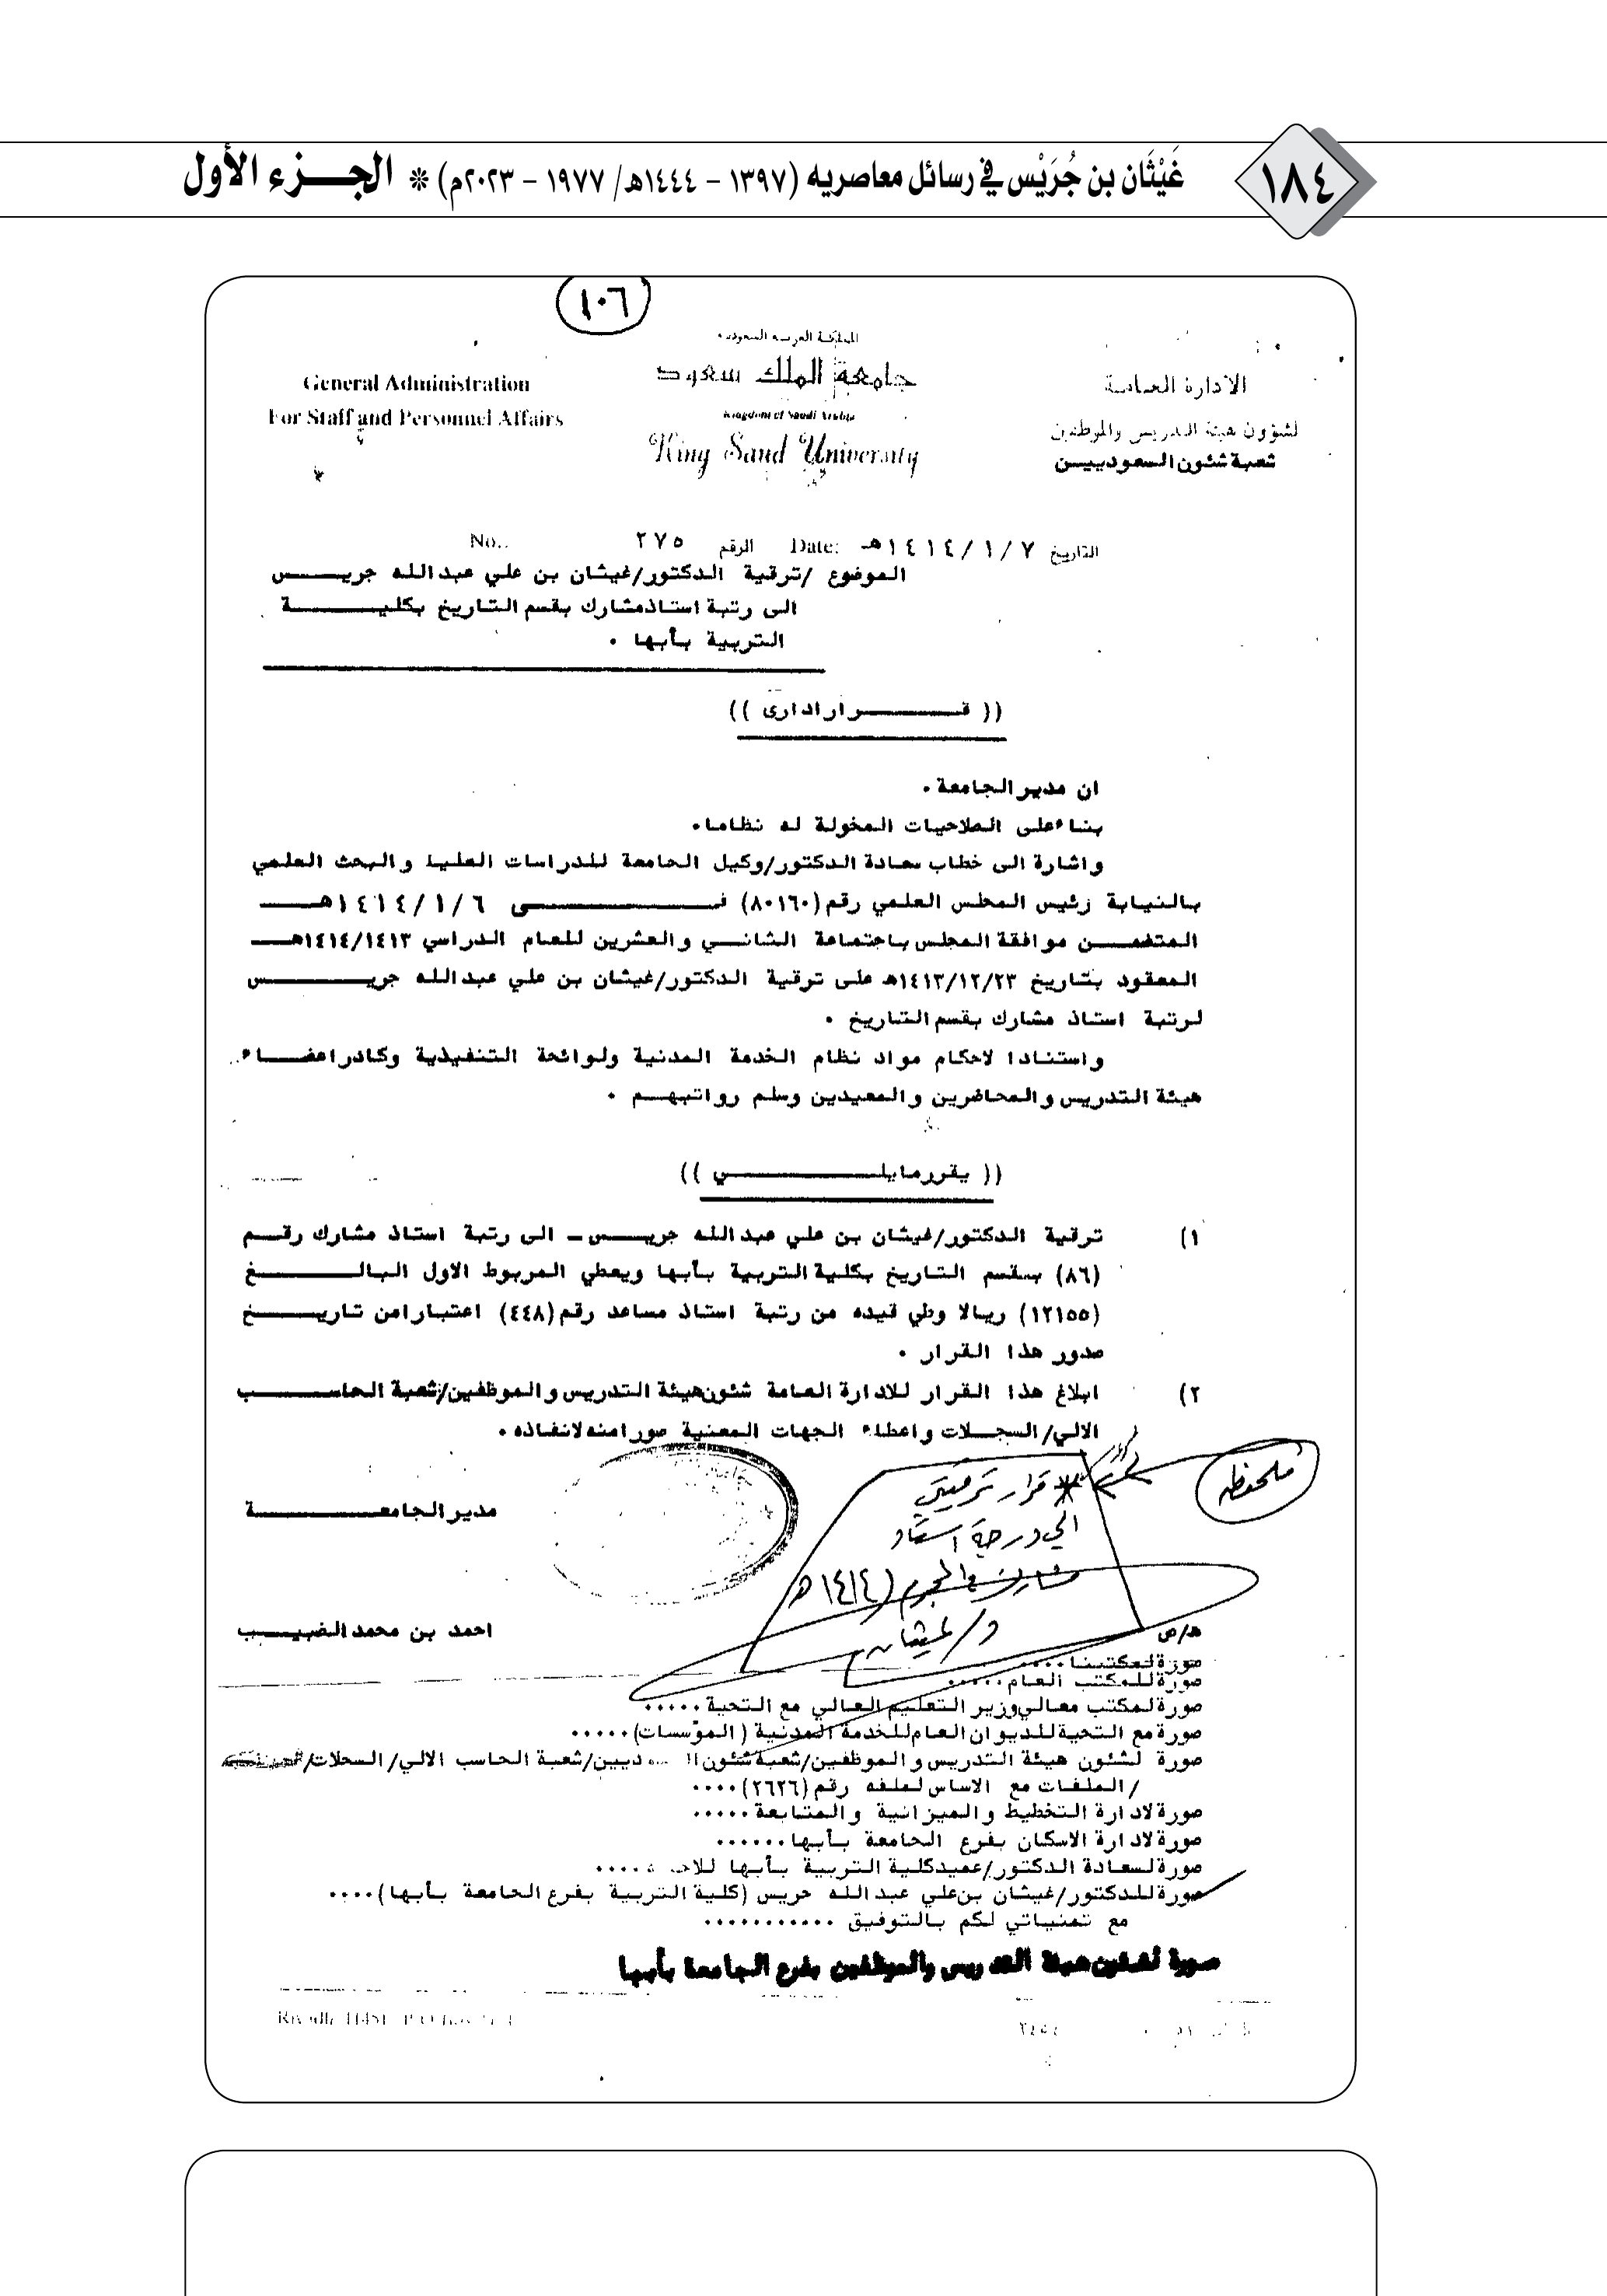 ١٨٤
غَيْثَان بن جُرَيْس في رسائل معاصريه (١٣٩٧ - ١٤٤٤هـ/ ١٩٧٧ - ٢٠٢٣م) * الجـــزء الأول
١٠٦
المملكة العربية السعودية
جامعة الملك سعود
Kingdom of Saudi Arabia
King Saud University
الادارة العامة
لشؤون هيئة التدريس والموظفين
شعبة شئون السعودييــن
General Administration
For Staff and Personnel Affairs
التاريخ ١٤١٤/١/٧هـ Date: الرقم ٢٧٥ No.:
الموضوع /ترقية الدكتور/غيشان بن علي عبدالله جريــــس
الى رتبة استاذمشارك بقسم التاريخ بكليـــــــة
التربية بأبها .
(( قــــــراراداری ))
ان مديرالجامعة .
بناءعلى الصلاحيات المخولة له نظاما.
واشارة الى خطاب سعادة الدكتور/وكيل الجامعة للدراسات العليا والبحث العلمي
بالنيابة رئيس المجلس العلمي رقم (٨٠١٦٠) فــــــــــى ١٤١٤/١/٦هـــ
المتضمــن موافقة المجلس باجتماعة الثانــي والعشرين للعام الدراسي ١٤١٤/١٤١٣هــ
المعقود بتاريخ ١٤١٣/١٢/٢٣هـ على ترقية الدكتور/غيشان بن علي عبدالله جريــــــس
لرتبة استاذ مشارك بقسم التاريخ .
واستنادا لاحكام مواد نظام الخدمة المدنية ولوائحة التنفيذية وكادراعضــاء
هيئة التدريس والمحاضرين والمعيدين وسلم رواتبهــم .
(( يقررمايلـــــــــــي ))
١) ترقية الدكتور/غيشان بن علي عبدالله جريــــس - الى رتبة استاذ مشارك رقــم
(٨٦) بقسم التاريخ بكلية التربية بأبها ويعطي المربوط الاول البالـــــــغ
(١٢١٥٥) ريالا وطي قيده من رتبة استاذ مساعد رقم (٤٤٨) اعتبارامن تاريـــــخ
صدور هذا القرار .
٢) ابلاغ هذا القرار للادارة العامة شئون هيئة التدريس والموظفين/شعبة الحاســـــب
الالي/ السجــلات واعطاء الجهات المعنية صورامنه لانفاذه .
ملحوظه
* قرار ترقيتي
الى درجة استاذ
مشارك في المحرم (١٤١٤هـ
د/ غيثان
مديرالجامعـــــــــة
احمد بن محمد الضبيـــب
هـ/ص
صورة لمكتبنا .....
صورة للمكتب العام .....
صورة لمكتب معالي وزير التعليم العالي مع التحية .....
صورة مع التحية للديوان العام للخدمة المدنية ( المؤسسات) .....
صورة لشئون هيئة التدريس والموظفين/شعبة شئون ديين/شعبة الحاسب الالي/ السجلات/
/ الملفات مع الاساس لملفه رقم (٢٦٢٦) ....
صورة لادارة التخطيط والميزانية والمتابعة .....
صورة لادارة الاسكان بفرع الجامعة بأبها ......
صورة لسعادة الدكتور/عميدكلية التربية بأبها .....
صورة للدكتور/غيشان بن علي عبدالله جريس (كلية التربية بفرع الجامعة بأبها) ....
مع تمنياتي لكم بالتوفيق ...........
صورة لشئون هيئة التدريس والموظفين بفرع الجامعة بأبها